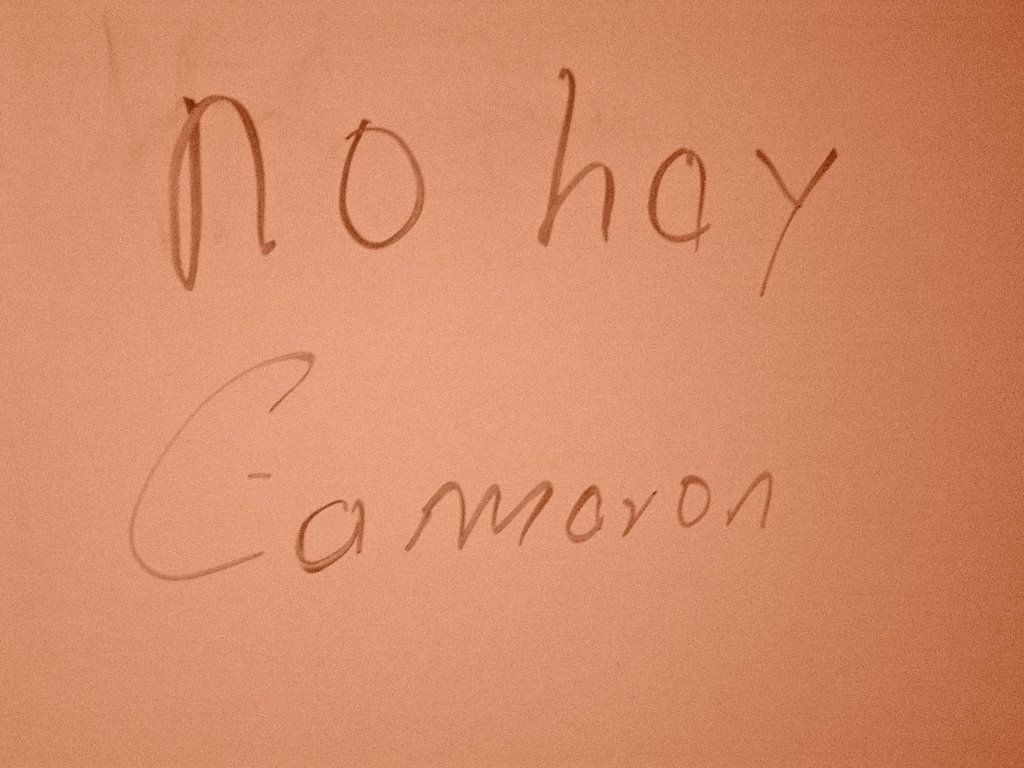 no hay
Camaron